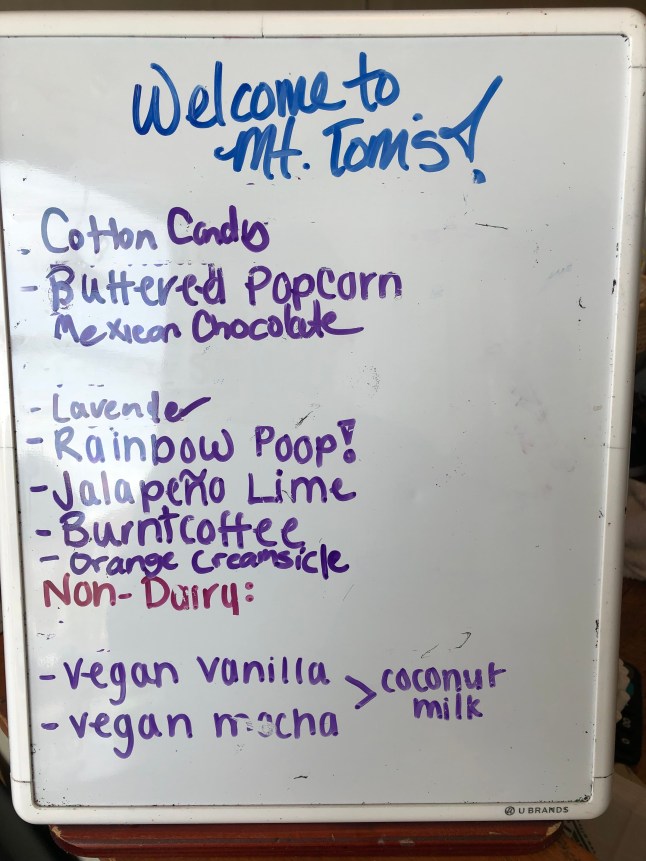 Welcome to
Mt. Tom's!
- Cotton Candy
- Buttered Popcorn
Mexican Chocolate
- Lavender
- Rainbow Poop!
- Jalapeño Lime
- Burnt coffee
- Orange Creamsicle
Non-Dairy:
- vegan vanilla
- vegan mocha
> coconut
milk
U BRANDS